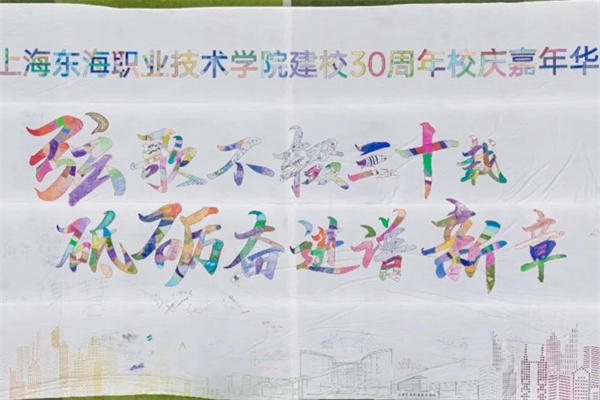 上海东海职业技术学院建校30周年校庆嘉年华
弦歌不辍三十载
砥砺奋进谱新章